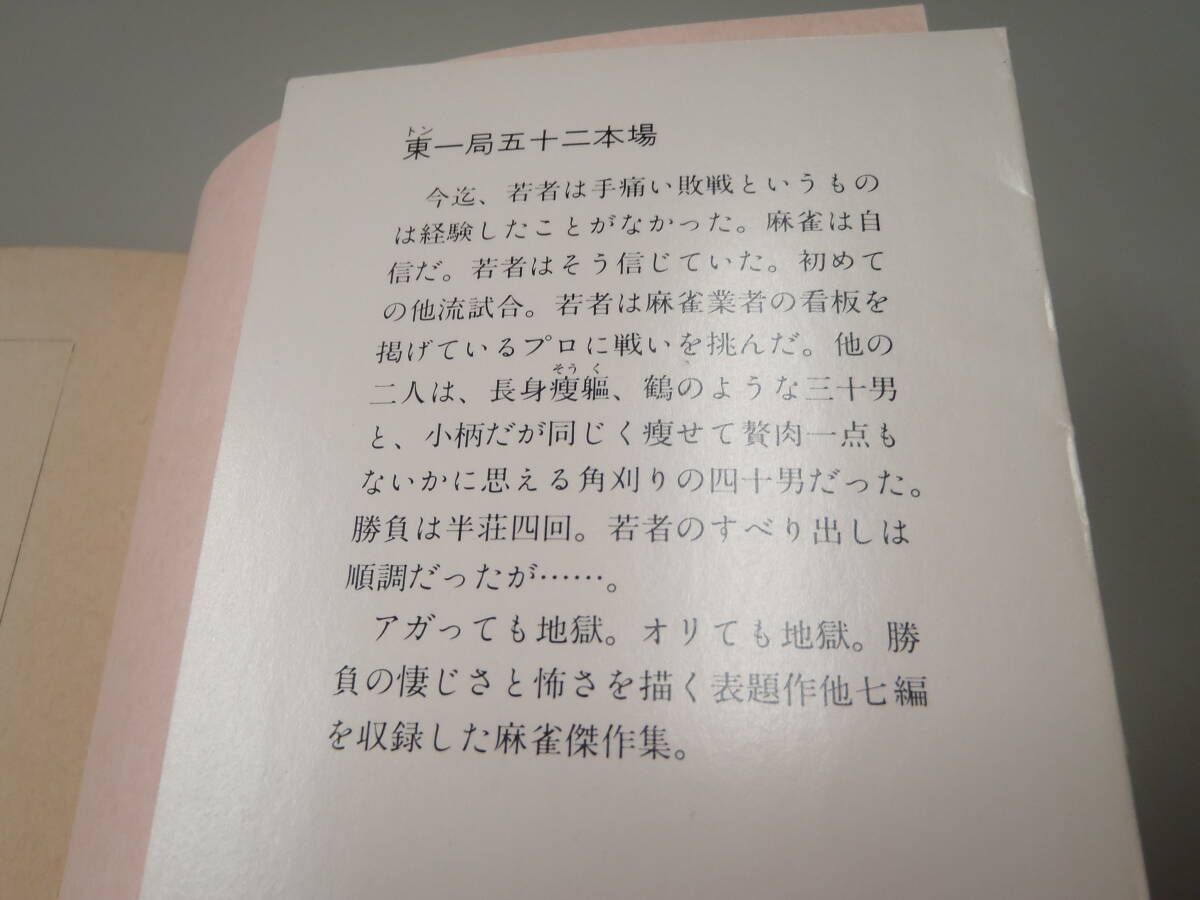 トン
東一局五十二本場
今迄、若者は手痛い敗戦というもの
は経験したことがなかった。麻雀は自
信だ。若者はそう信じていた。初めて
の他流試合。若者は麻雀業者の看板を
掲げているプロに戦いを挑んだ。他の
そうく
二人は、長身痩軀、鶴のような三十男
と、小柄だが同じく痩せて贅肉一点も
ないかに思える角刈りの四十男だった。
勝負は半荘四回。若者のすべり出しは
順調だったが……。
アガっても地獄。オリても地獄。勝
負の悽じさと怖さを描く表題作他七編
を収録した麻雀傑作集。